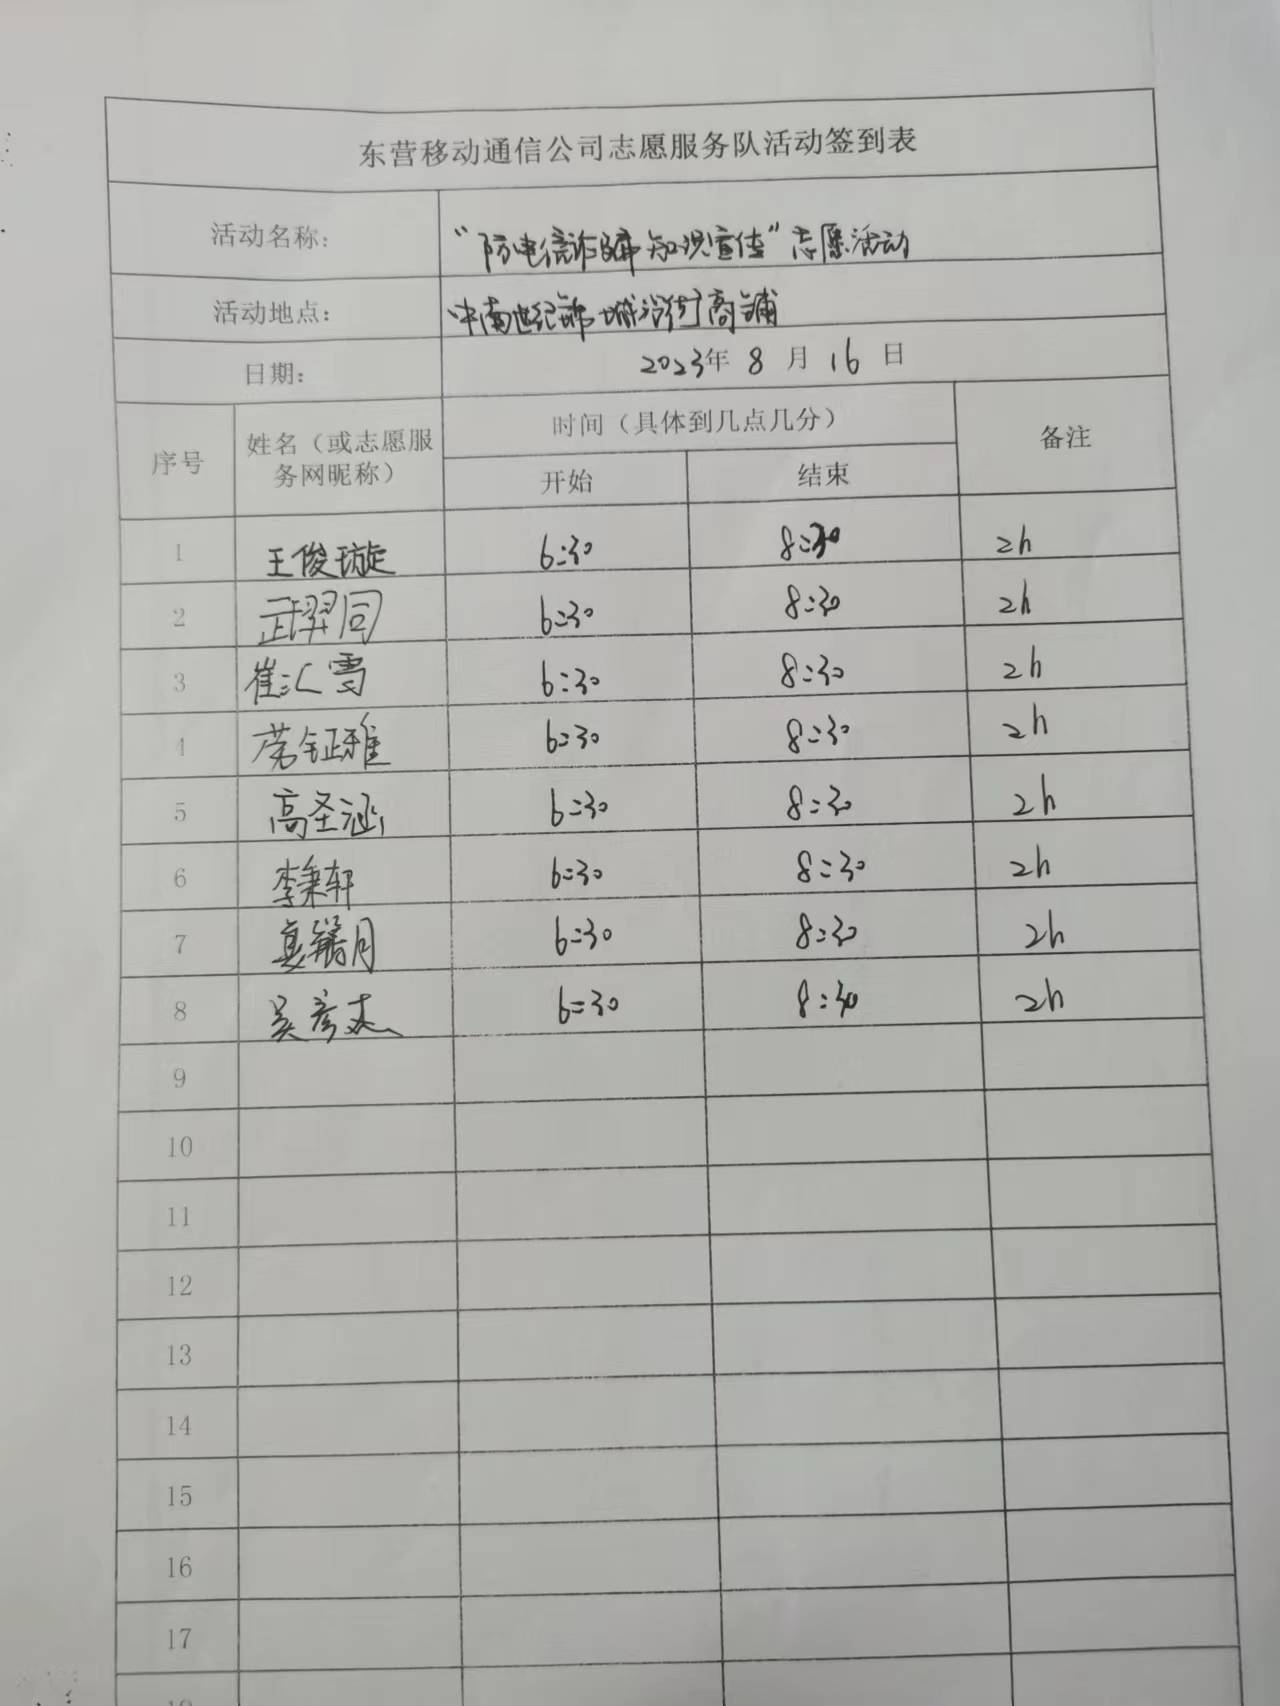 东营移动通信公司志愿服务队活动签到表
活动名称: “防电信诈骗知识宣传”志愿活动
活动地点: 中南世纪锦城沿街商铺
日期: 2023年 8 月 16 日
序号 姓名（或志愿服务网昵称） 时间（具体到几点几分） 备注
开始 结束
1 王俊璇 6:30 8:30 2h
2 武羿同 6:30 8:30 2h
3 崔汇雪 6:30 8:30 2h
4 钲雅 6:30 8:30 2h
5 高圣涵 6:30 8:30 2h
6 李秉轩 6:30 8:30 2h
7 月 6:30 8:30 2h
8 吴彦 6:30 8:30 2h
9
10
11
12
13
14
15
16
17